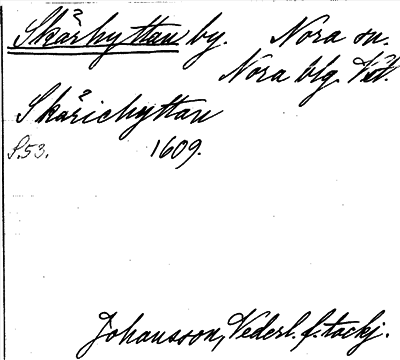 Skårhyttan by. Nora sn.
Nora blg. Väst.
Skårichyttan
S. 53. 1609.
Johansson, Vederl. f. tackj.